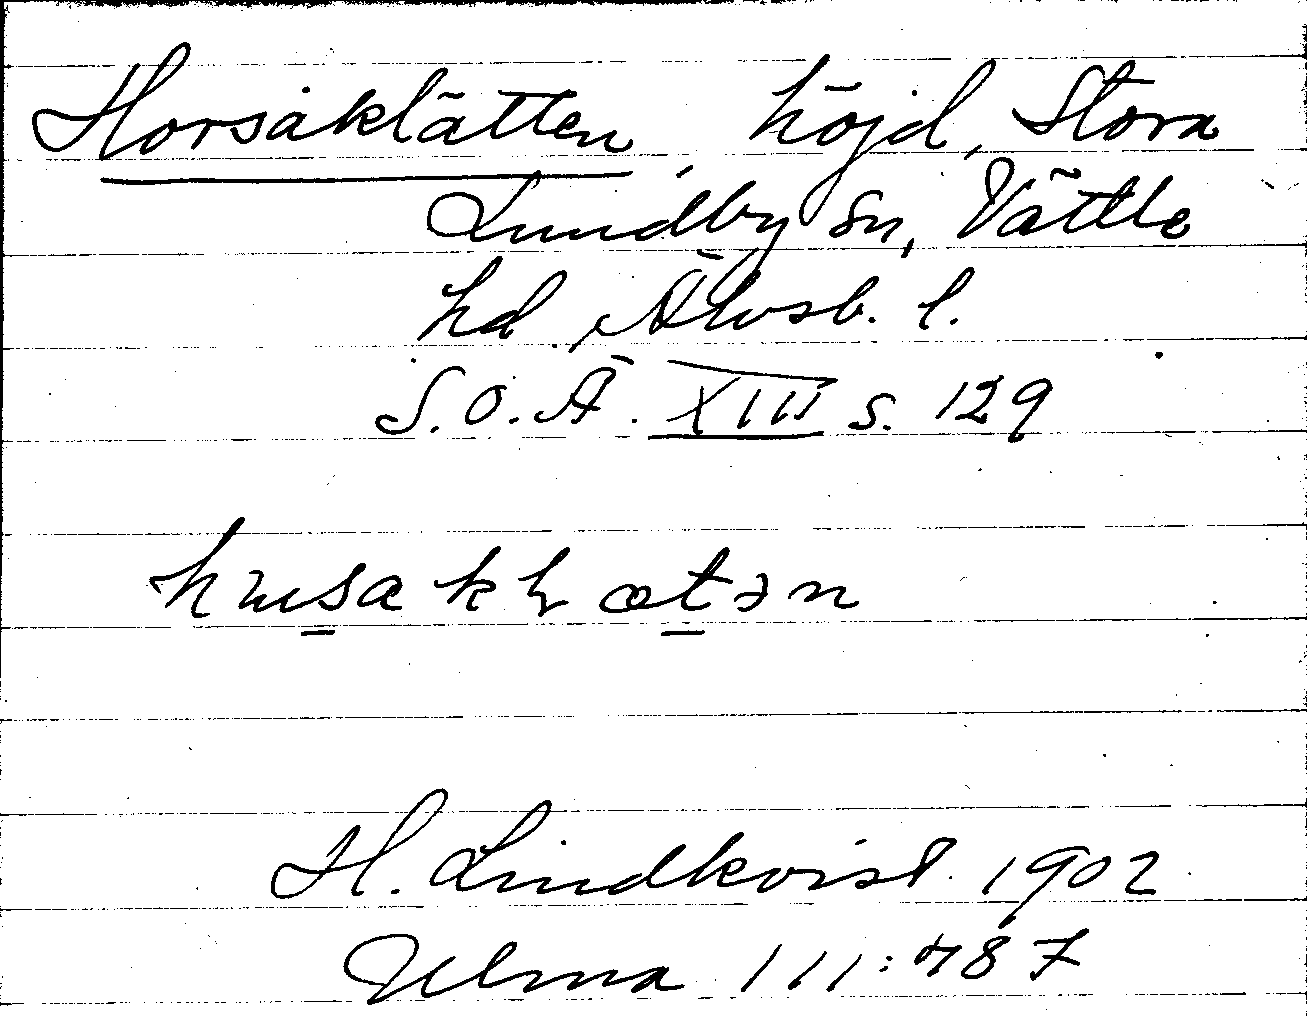 Horsåklätten, höjd, Stora
Lundby sn, Vättle
hd, Älvsb. l.
S.O.Ä. XIII s. 129
H. Lindkvist 1902
Ulma 111:487